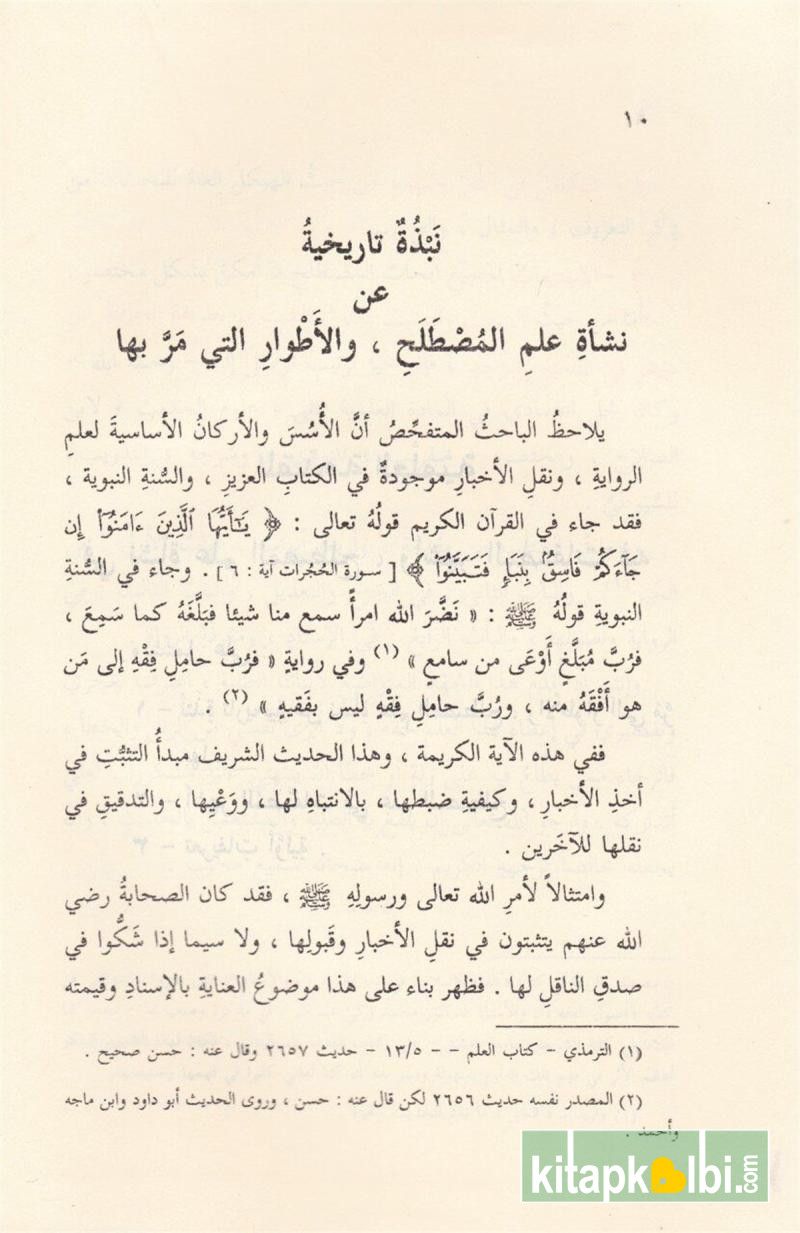 ١٠
نَبْذُةٌ تاريخيةُ
عن
نشأةِ علمِ المُصْطَلَحِ ، والأَطْوارِ التي مَرَّ بها
يلاحظُ الباحثُ المتفحِّصُ أنَّ الأُسُسَ والأركانُ الأساسيةَ لعلمِ
الروايةِ ، ونقلِ الأخبارِ موجودةٌ في الكتابِ العزيزِ ، والسُّنةِ النبوية ،
فقد جاء في القرآن الكريم قولُهُ تعالى : ﴿ يَٰٓأَيُّهَا ٱلَّذِينَ ءَامَنُوٓا۟ إِن
جَآءَكُمْ فَاسِقٌۢ بِنَبَإٍ فَتَبَيَّنُوٓا۟ ﴾ [ سورة الحُجُرات آية : ٦ ] . وجاء في السُّنةِ
النبويةِ قولُهُ ﷺ : « نَضَّرَ الله امرأً سمع منا شيئا فبَلَّغَهُ كما سَمِعَ ،
فرُبَّ مُبَلَّغٍ أَوْعَى من سامعٍ » (١) وفي روايةٍ « فرُبَّ حامِلِ فِقْهٍ إلى مَن
هو أَفْقَهُ منه ، ورُبَّ حامِلِ فِقْهٍ ليس بفَقيهٍ » (٢) .
ففي هذه الآية الكريمة ، وهذا الحديث الشريف مبدأُ التثبُّتِ في
أخذِ الأخبارِ ، وكيفيةِ ضبطها ، بالانتباهِ لها ، ووَعْيِها ، والتدقيقِ في
نقلها للآخَرين .
وامتثالاً لأمرِ الله تعالى ورسولِهِ ﷺ ، فقد كان الصحابةُ رضي
الله عنهم يتثبتون في نقل الأخبار وقَبولِها ، ولا سيما إذا شَكُّوا في
صدقِ الناقلِ لها . فظهر بناء على هذا موضوعُ العنايةِ بالإسنادِ وقيمته
(١) الترمذي - كتاب العلم - - ١٣/٥ - حديث ٢٦٥٧ وقال عنه : حسن صحيح .
(٢) المصدر نفسه حديث ٢٦٥٦ لكن قال عنه : حسن ، وروى الحديث أبو داود وابن ماجه
وأحمد .
kitapkalbi.com